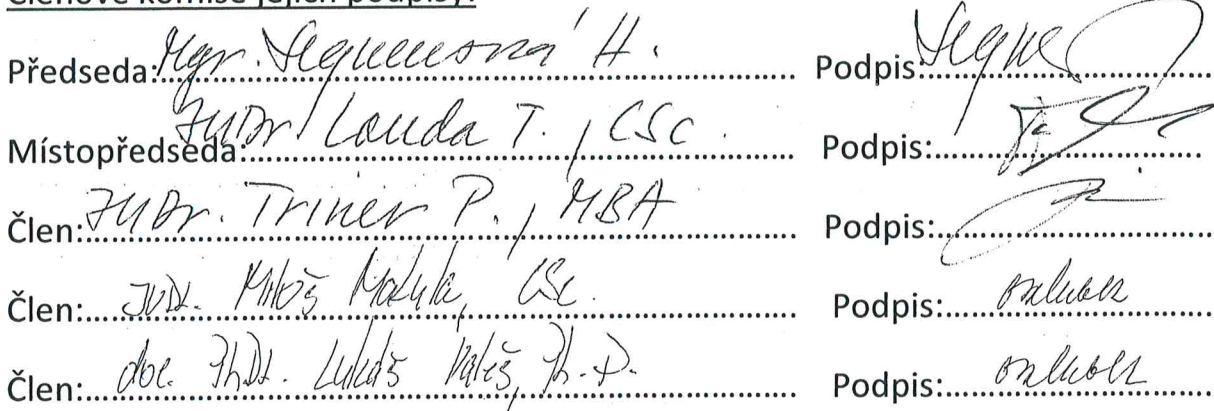 Členové komise jejich podpisy:
Předseda: Mgr. H. Podpis:
Místopředseda: JUDr. Louda T., CSc. Podpis:
Člen: JUDr. Triner P., MBA Podpis:
Člen: JUDr. Miloš CSc. Podpis: omluven
Člen: doc. PhDr. Lukáš Valeš, Ph.D. Podpis: omluven